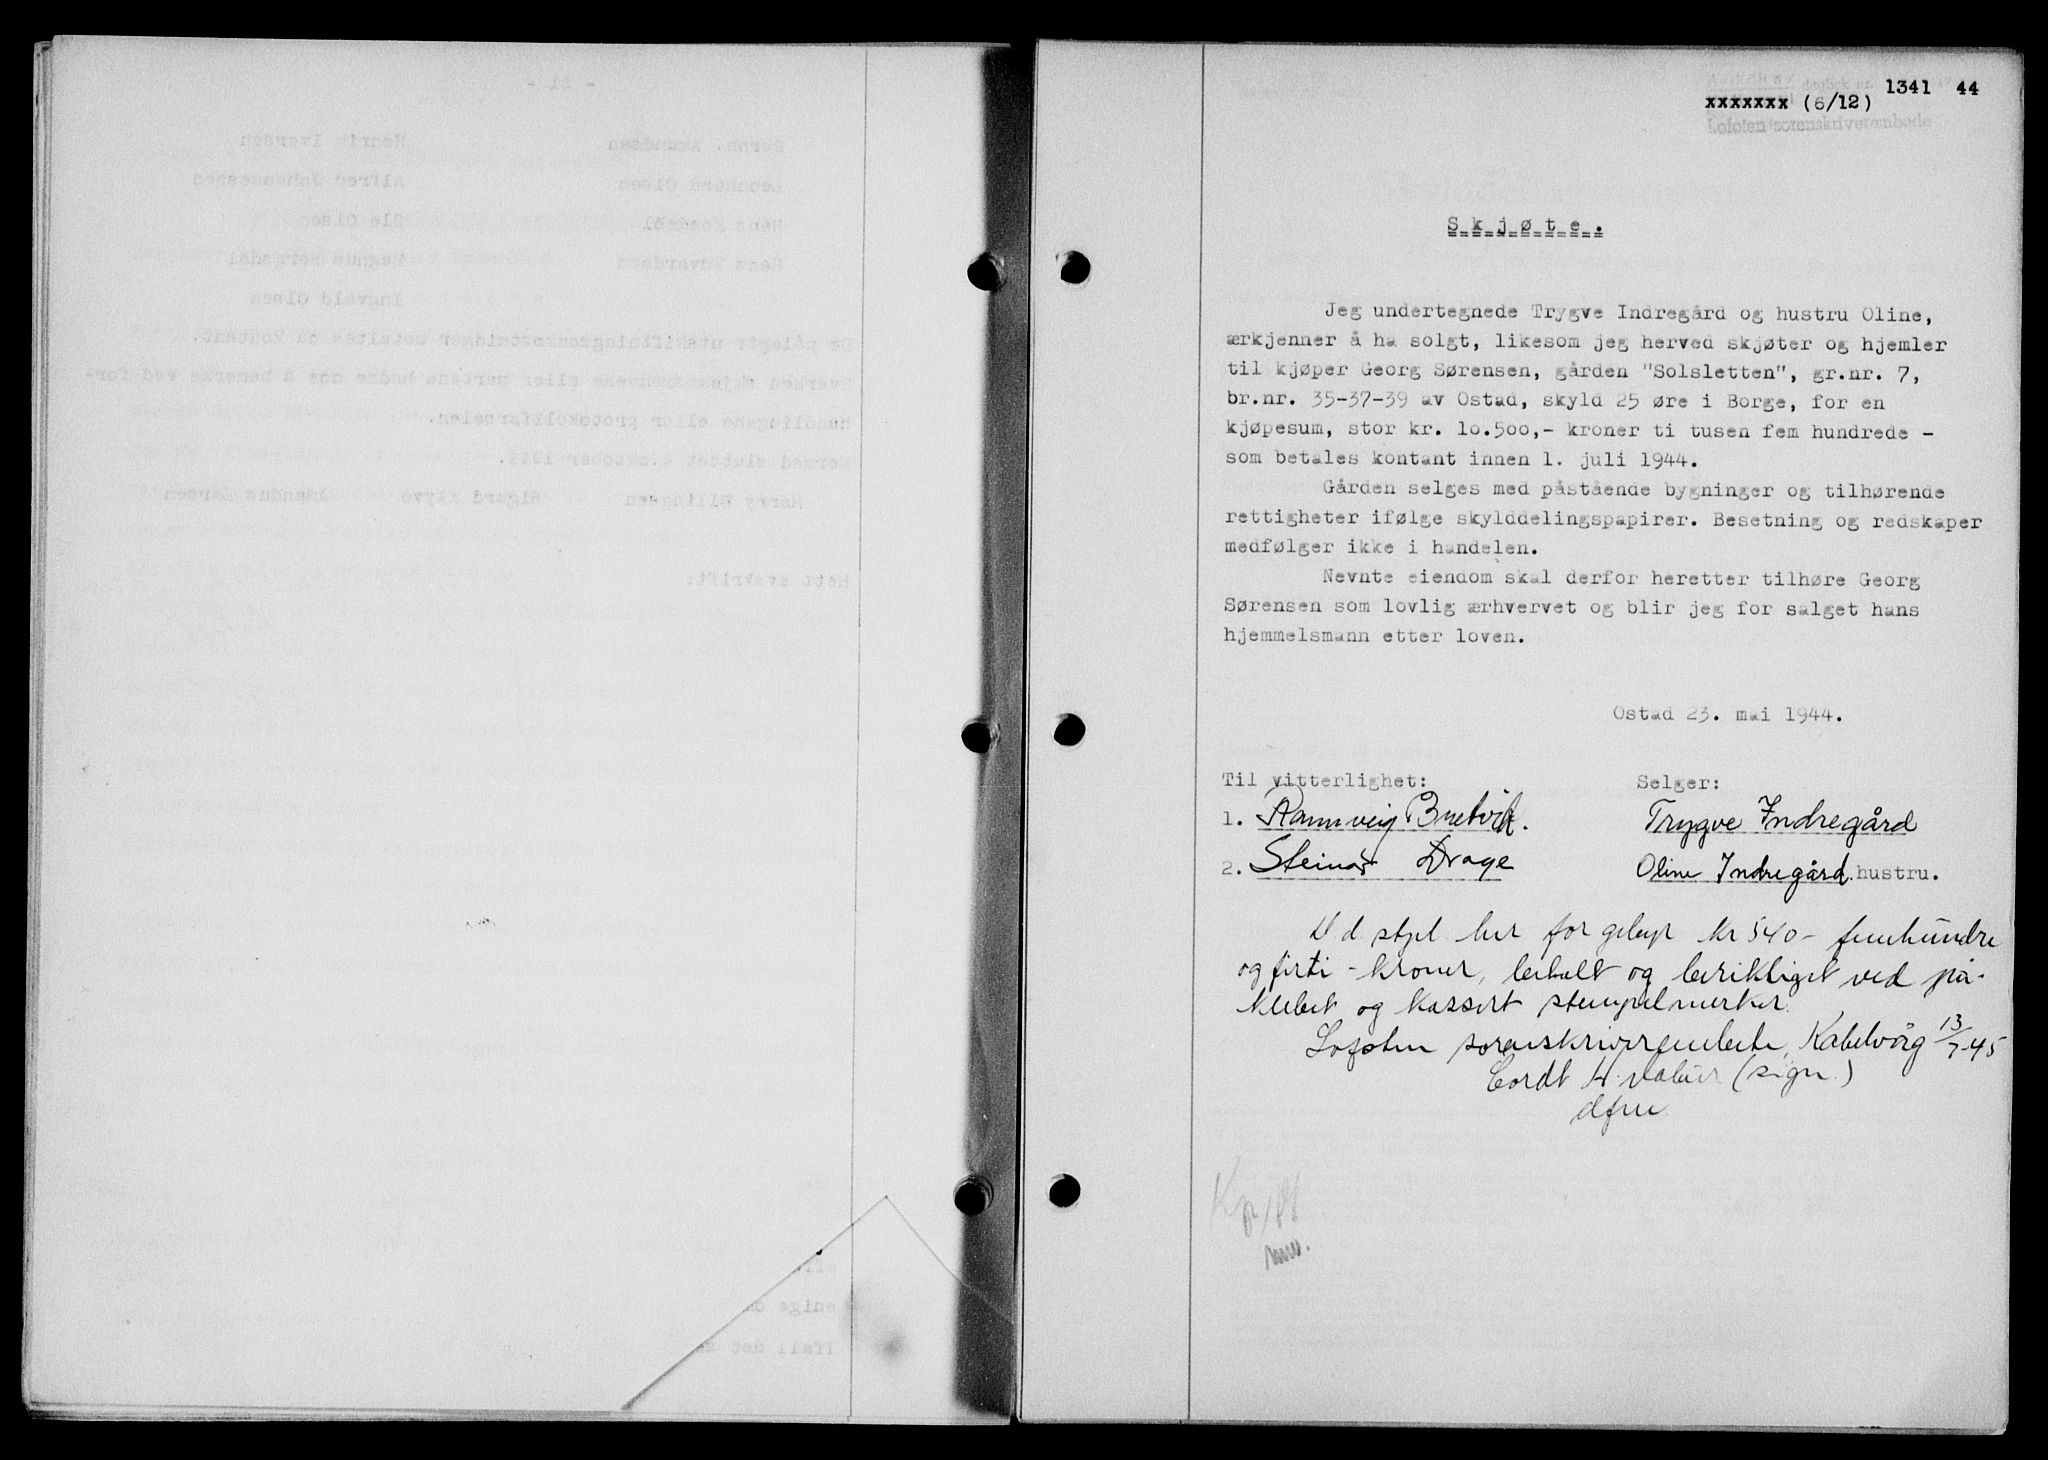 1341 44
xxxxxxx (6/12)
Lofoten sorenskriverembede
Skjøte.
Jeg undertegnede Trygve Indregård og hustru Oline,
ærkjenner å ha solgt, likesom jeg herved skjøter og hjemler
til kjøper Georg Sørensen, gården "Solsletten", gr.nr. 7,
br.nr. 35-37-39 av Ostad, skyld 25 øre i Borge, for en
kjøpesum, stor kr. 10.500,- kroner ti tusen fem hundrede -
som betales kontant innen 1. juli 1944.
Gården selges med påstående bygninger og tilhørende
rettigheter ifølge skylddelingspapirer. Besetning og redskaper
medfølger ikke i handelen.
Nevnte eiendom skal derfor heretter tilhøre Georg
Sørensen som lovlig ærhvervet og blir jeg for salget hans
hjemmelsmann etter loven.
Ostad 23. mai 1944.
Til vitterlighet: Selger:
1. Rannveig Bretvik. Trygve Indregård
2. Steinar Drage Oline Indregård hustru.
for gebyr kr 540- femhundre
og firti - kroner, beholt og beriktiget ved på-
klebet og kassert stempelmerker.
Lofoten sorenskriverembete, Kabelvåg 13/7-45
Cordt H. (sign.)